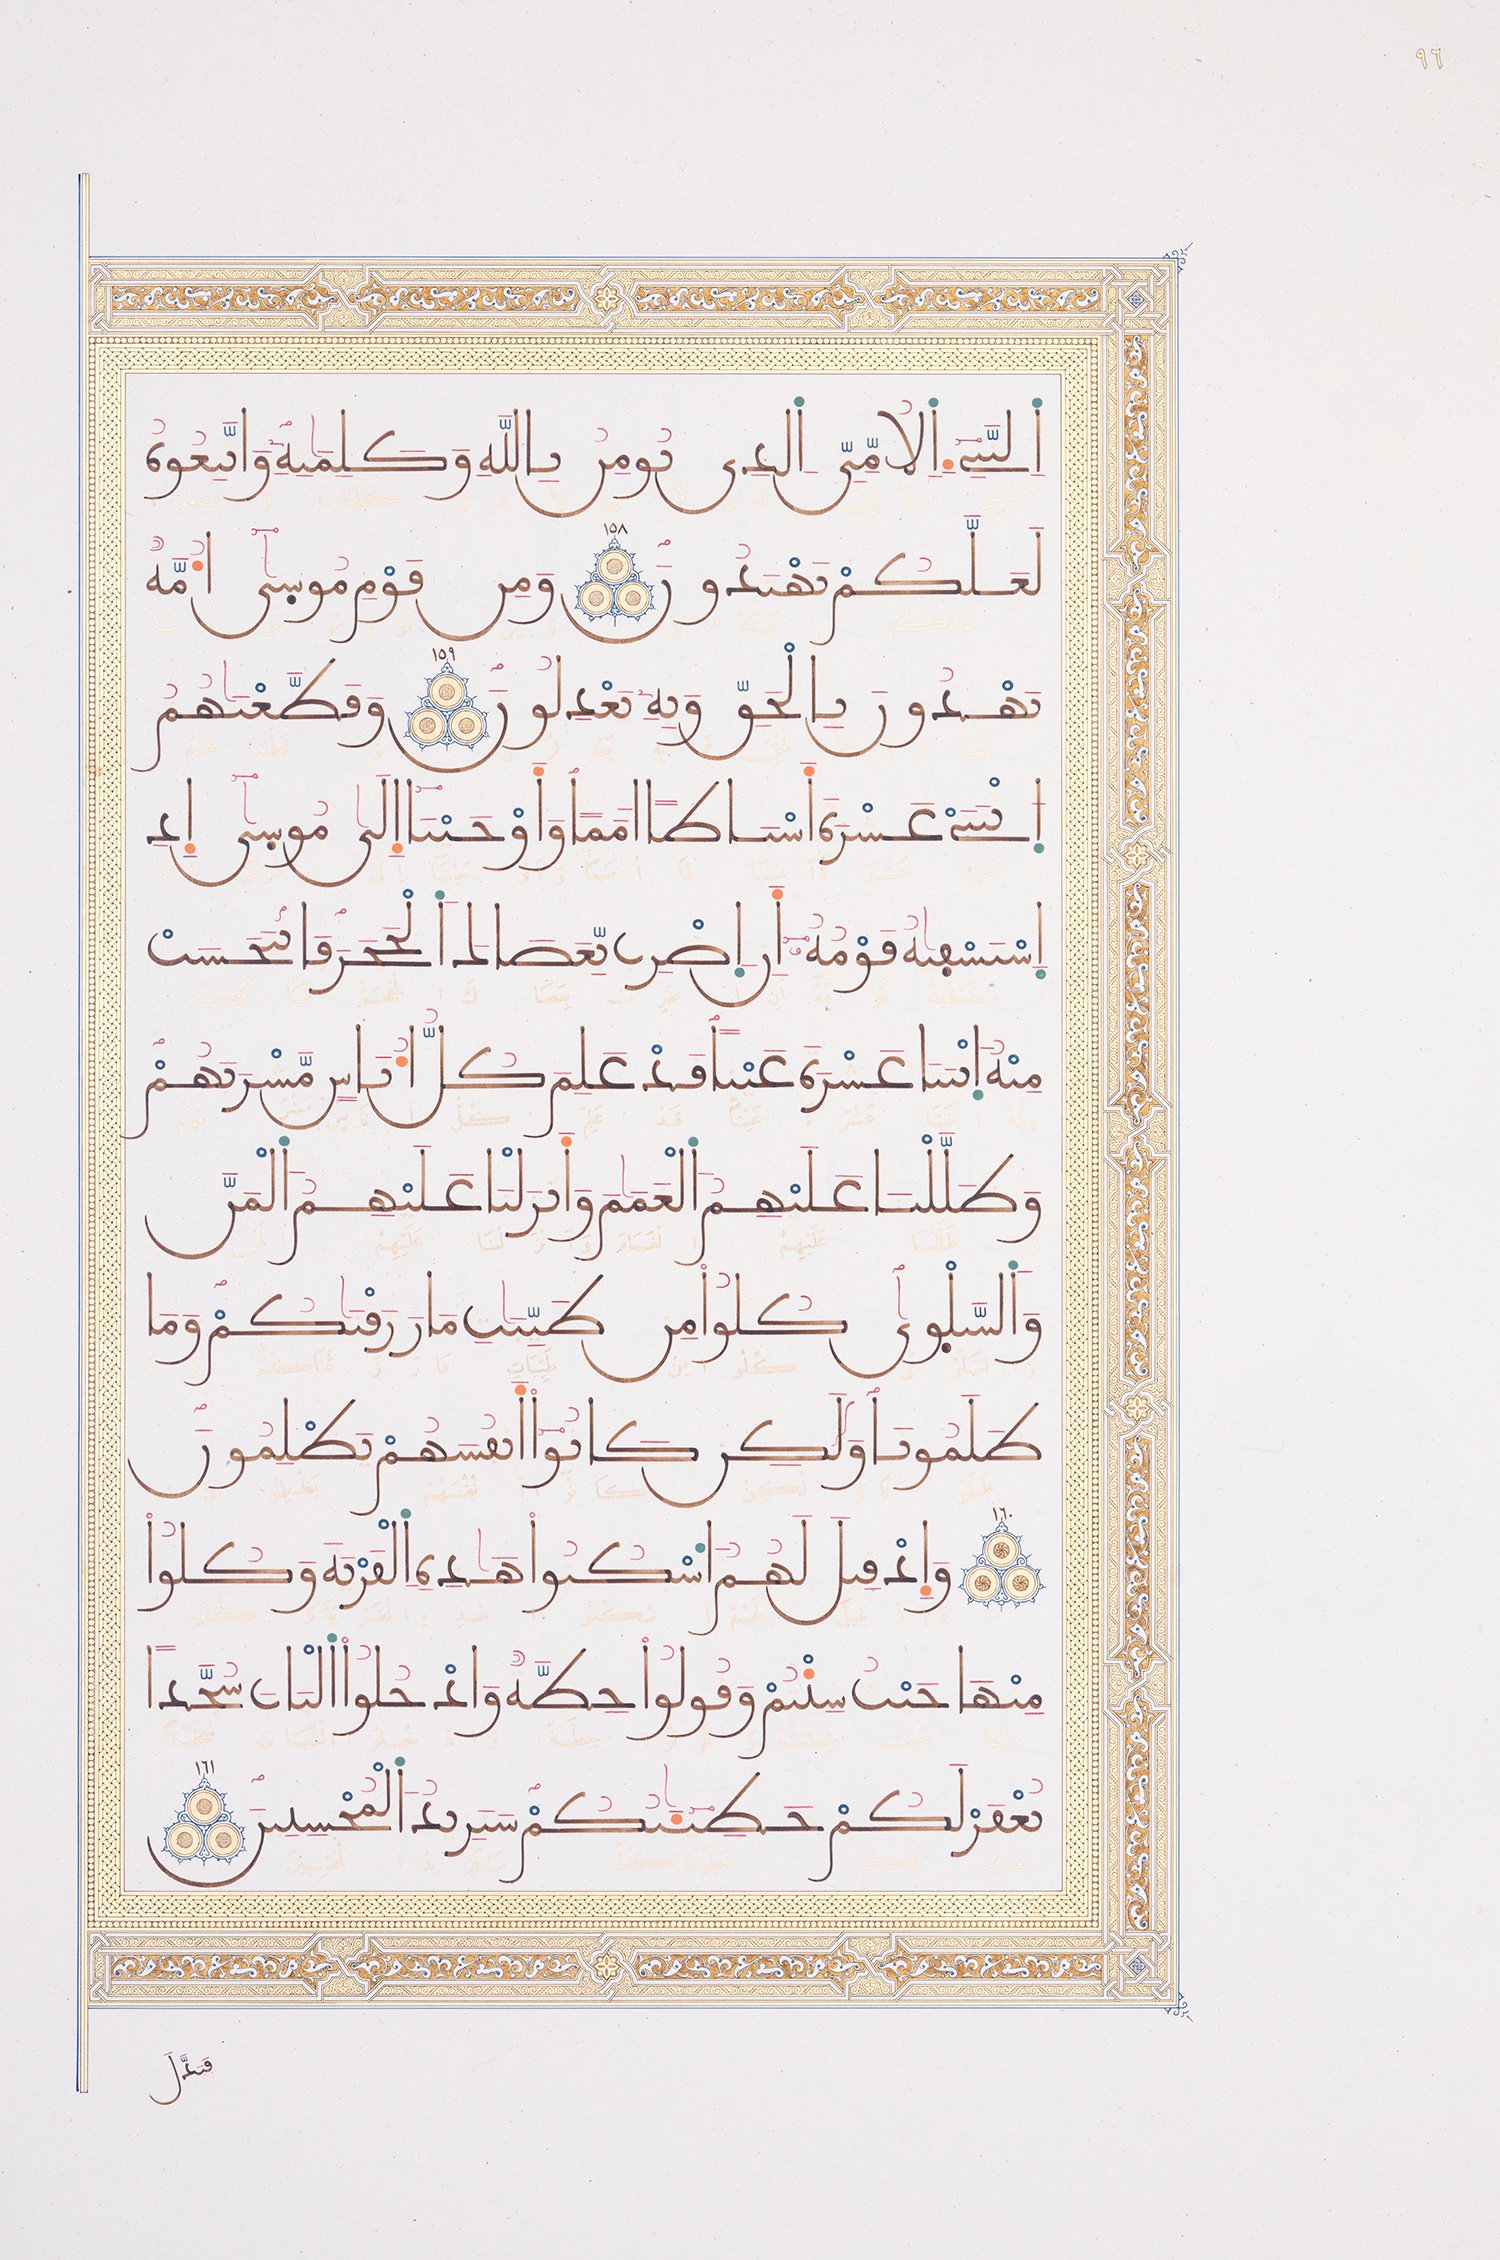 ٩٦
اَ۬لنَّبِےٓءِ اِ۬لُامِّيِّ اِ۬لذِے يُومِنُ بِاللَّهِ وَكَلِمَٰتِهِۦ وَاتَّبِعُوهُ
لَعَلَّكُمْ تَهْتَدُونَ ١٥٨ وَمِن قَوْمِ مُوسَىٰٓ أُمَّةٌ
يَهْدُونَ بِالْحَقِّ وَبِهِۦ يَعْدِلُونَ ١٥٩ وَقَطَّعْنَٰهُمُ
اُ۪ثْنَتَيْ عَشْرَةَ أَسْبَاطاً اُمَماً وَأَوْحَيْنَآ إِلَىٰ مُوسَىٰٓ إِذِ
اِ۪سْتَسْقَىٰهُ قَوْمُهُۥٓ أَنِ اِ۪ضْرِب بِّعَصَاكَ اَ۬لْحَجَرَ فَانۢبَجَسَتْ
مِنْهُ اُ۪ثْنَتَا عَشْرَةَ عَيْناً قَدْ عَلِمَ كُلُّ أُنَاسٍ مَّشْرَبَهُمْ
وَظَلَّلْنَا عَلَيْهِمُ اُ۬لْغَمَٰمَ وَأَنزَلْنَا عَلَيْهِمُ اُ۬لْمَنَّ
وَالسَّلْوَىٰ كُلُواْ مِن طَيِّبَٰتِ مَا رَزَقْنَٰكُمْ وَمَا
ظَلَمُونَا وَلَٰكِن كَانُوٓاْ أَنفُسَهُمْ يَظْلِمُونَ
١٦٠ وَإِذْ قِيلَ لَهُمُ اُ۟سْكُنُواْ هَٰذِهِ اِ۬لْقَرْيَةَ وَكُلُواْ
مِنْهَا حَيْثُ شِئْتُمْ وَقُولُواْ حِطَّةٌ وَادْخُلُواْ اُ۬لْبَابَ سُجَّداً
تُغْفَرْ لَكُمْ خَطِيٓـَٰٔتُكُمْ سَنَزِيدُ اُ۬لْمُحْسِنِينَ ١٦١
فَبَدَّلَ